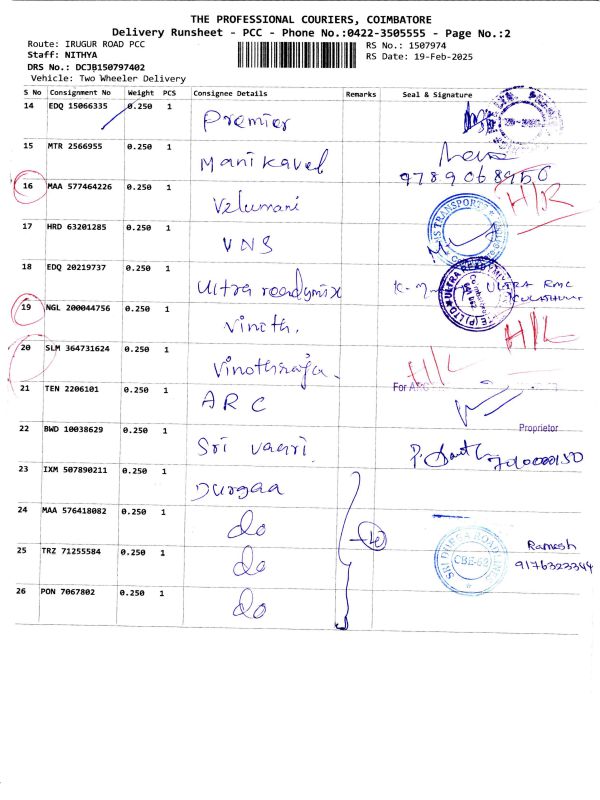 THE PROFESSIONAL COURIERS, COIMBATORE
Delivery Runsheet - PCC - Phone No.:0422-3505555 - Page No.:2
Route: IRUGUR ROAD PCC
RS No.: 1507974
Staff: NITHYA
RS Date: 19-Feb-2025
DRS No.: DCJB150797402
Vehicle: Two Wheeler Delivery
S No Consignment No Weight PCS Consignee Details Remarks Seal & Signature
14 EDQ 15066335 0.250 1 Premier
15 MTR 2566955 0.250 1 Manikavel
9789068950
16 MAA 577464226 0.250 1 Velumani H/R
17 HRD 63201285 0.250 1 VNS
18 EDQ 20219737 0.250 1 Ultra readymix ULTRA RMC
19 NGL 200044756 0.250 1 Vinoth. H/L
20 SLM 364731624 0.250 1 Vinothiraja. H/L
21 TEN 2206101 0.250 1 ARC For ARC
Proprietor
22 BWD 10038629 0.250 1 Sri vaari.
23 IXM 507890211 0.250 1 Durgaa
24 MAA 576418082 0.250 1 do
25 TRZ 71255584 0.250 1 do CBE-62 Ramesh
9176323344
26 PON 7067802 0.250 1 do